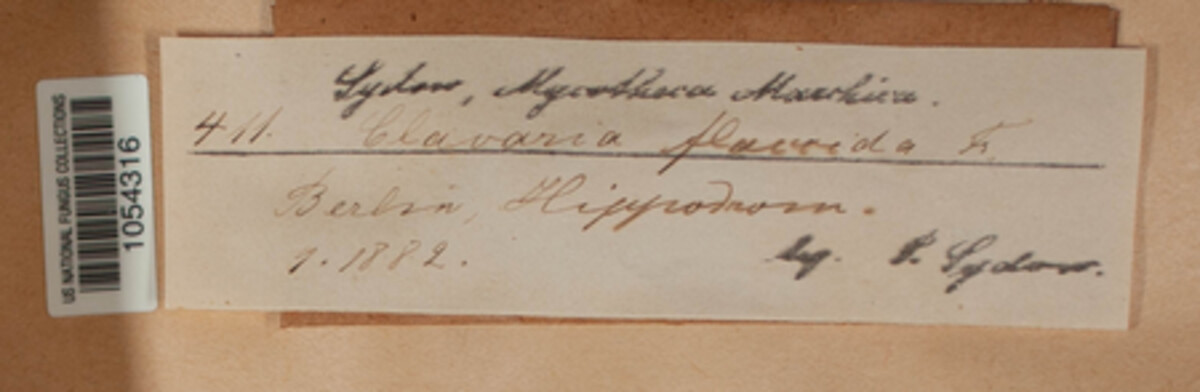 US NATIONAL FUNGUS COLLECTIONS
1054316
Sydow, Mycotheca Marchica.
411. Clavaria flaccida F.
Berlin, Hippodrom.
9. 1882.
leg. P. Sydow.